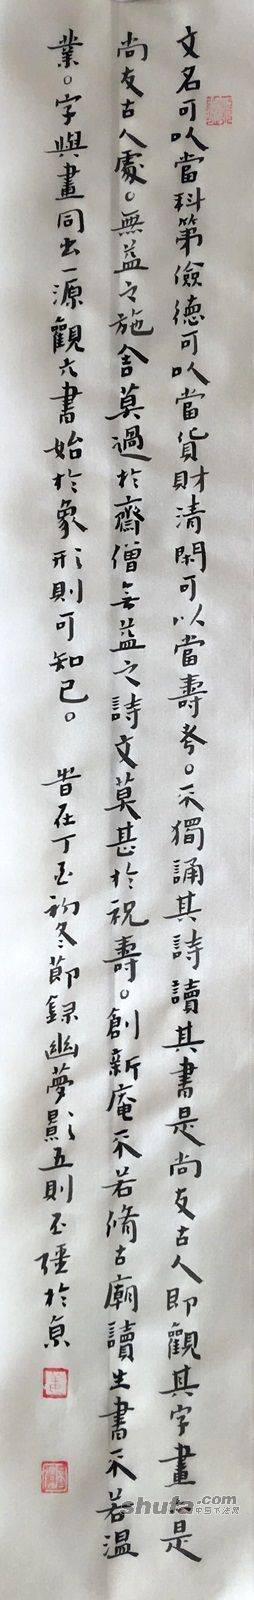 文名可以當科第儉德可以當貨財清閑可以當壽考。不獨誦其詩讀其書是尚友古人即觀其字畫亦是
尚友古人處。無益之施舍莫過於齋僧無益之詩文莫甚於祝壽。創新庵不若脩古廟讀生書不若溫
業。字與畫同出一源觀六書始於象形則可知已。 昔在丁酉初冬節錄幽夢影五則 於京
shufa.com
中国书法网